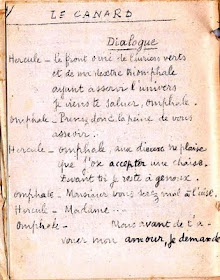 LE CANARD
Dialogue
Hercule - Le front orné de lauriers verts
et de ma dextre triomphale
ayant asservi l'univers
je viens te saluer, omphale.
omphale - Prenez donc la peine de vous
asseoir.
Hercule - omphale aux dieux ne plaise
que j'ose accepter une chaise.
Devant toi je reste à genoux.
omphale - Monsieur vous serez mal à l'aise.
Hercule - Madame...
omphale - Mais avant de t'a-
vouer mon amour, je demande